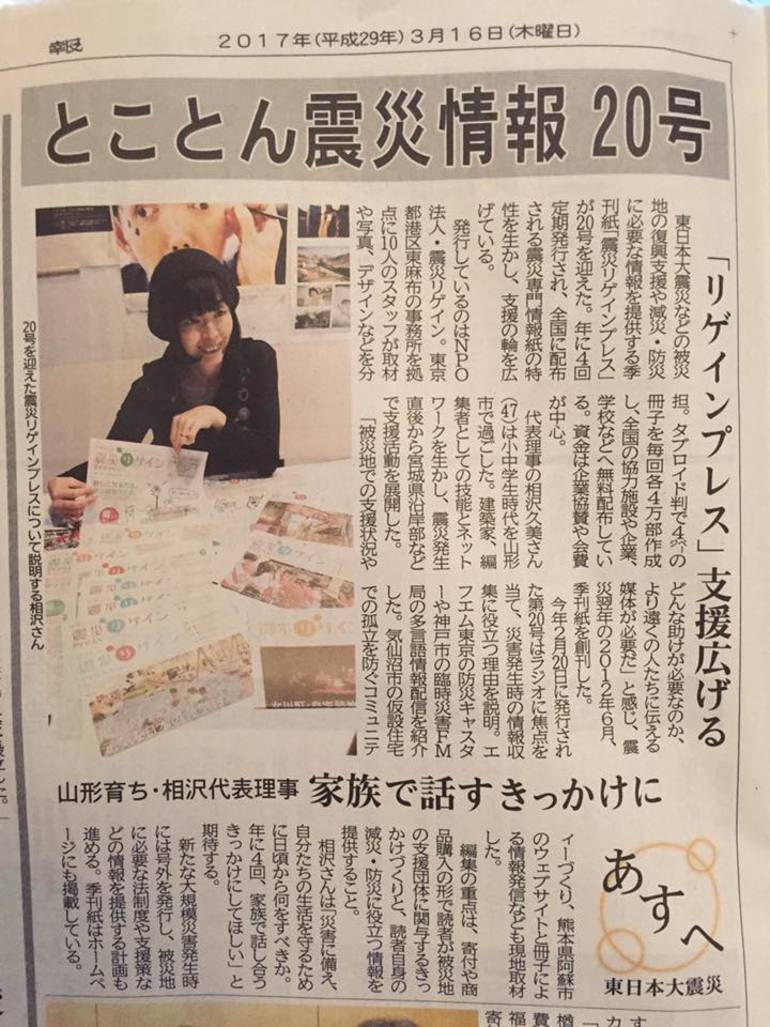 2017年(平成29年)3月16日(木曜日)
とことん震災情報 20号
「リゲインプレス」支援広げる
東日本大震災などの被災
地の復興支援や減災・防災
に必要な情報を提供する季
刊紙「震災リゲインプレス」
が20号を迎えた。年に4回
定期発行され、全国に配布
される震災専門情報紙の特
性を生かし、支援の輪を広
げている。
発行しているのはNPO
法人・震災リゲイン。東京
都港区東麻布の事務所を拠
点に10人のスタッフが取材
や写真、デザインなどを分
担。タブロイド判で4㌻の
冊子を毎回各4万部作成
し、全国の協力施設や企業、
学校などへ無料配布してい
る。資金は企業協賛や会費
が中心。
代表理事の相沢久美さん
(47)は小中学生時代を山形
市で過ごした。建築家、編
集者としての技能とネット
ワークを生かし、震災発生
直後から宮城県沿岸部など
で支援活動を展開した。
「被災地での支援状況や
どんな助けが必要なのか、
より遠くの人たちに伝える
媒体が必要だ」と感じ、震
災翌年の2012年6月、
季刊紙を創刊した。
今年2月20日に発行され
た第20号はラジオに焦点を
当て、災害発生時の情報収
集に役立つ理由を説明。エ
フエム東京の防災キャスタ
ーや神戸市の臨時災害FM
局の多言語情報配信を紹介
した。気仙沼市の仮設住宅
での孤立を防ぐコミュニテ
20号を迎えた震災リゲインプレスについて説明する相沢さん
山形育ち・相沢代表理事 家族で話すきっかけに
あすへ
東日本大震災
ィーづくり、熊本県阿蘇市
のウェブサイトと冊子によ
る情報発信なども現地取材
した。
編集の重点は、寄付や商
品購入の形で読者が被災地
の支援団体に関与するきっ
かけづくりと、読者自身の
減災・防災に役立つ情報を
提供すること。
相沢さんは「災害に備え、
自分たちの生活を守るため
に日頃から何をすべきか。
年に4回、家族で話し合う
きっかけにしてほしい」と
期待する。
新たな大規模災害発生時
には号外を発行し、被災地
に必要な法制度や支援策な
どの情報を提供する計画も
進める。季刊紙はホームペ
ージにも掲載している。